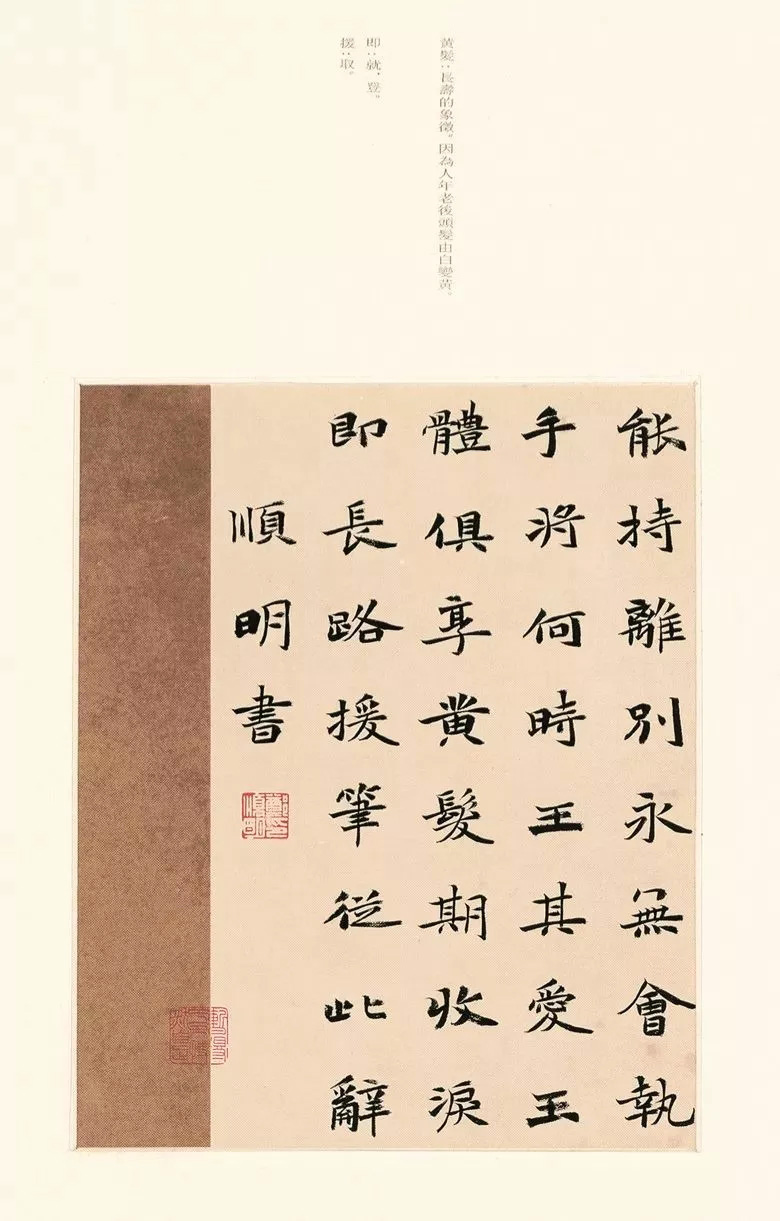 黄髮：長壽的象徵。因為人年老後頭髮由白變黄。
即：就，登。
援：取。
能持離別永無會執
手將何時王其愛玉
體俱享黄髮期收淚
即長路援筆從此辭
順明書